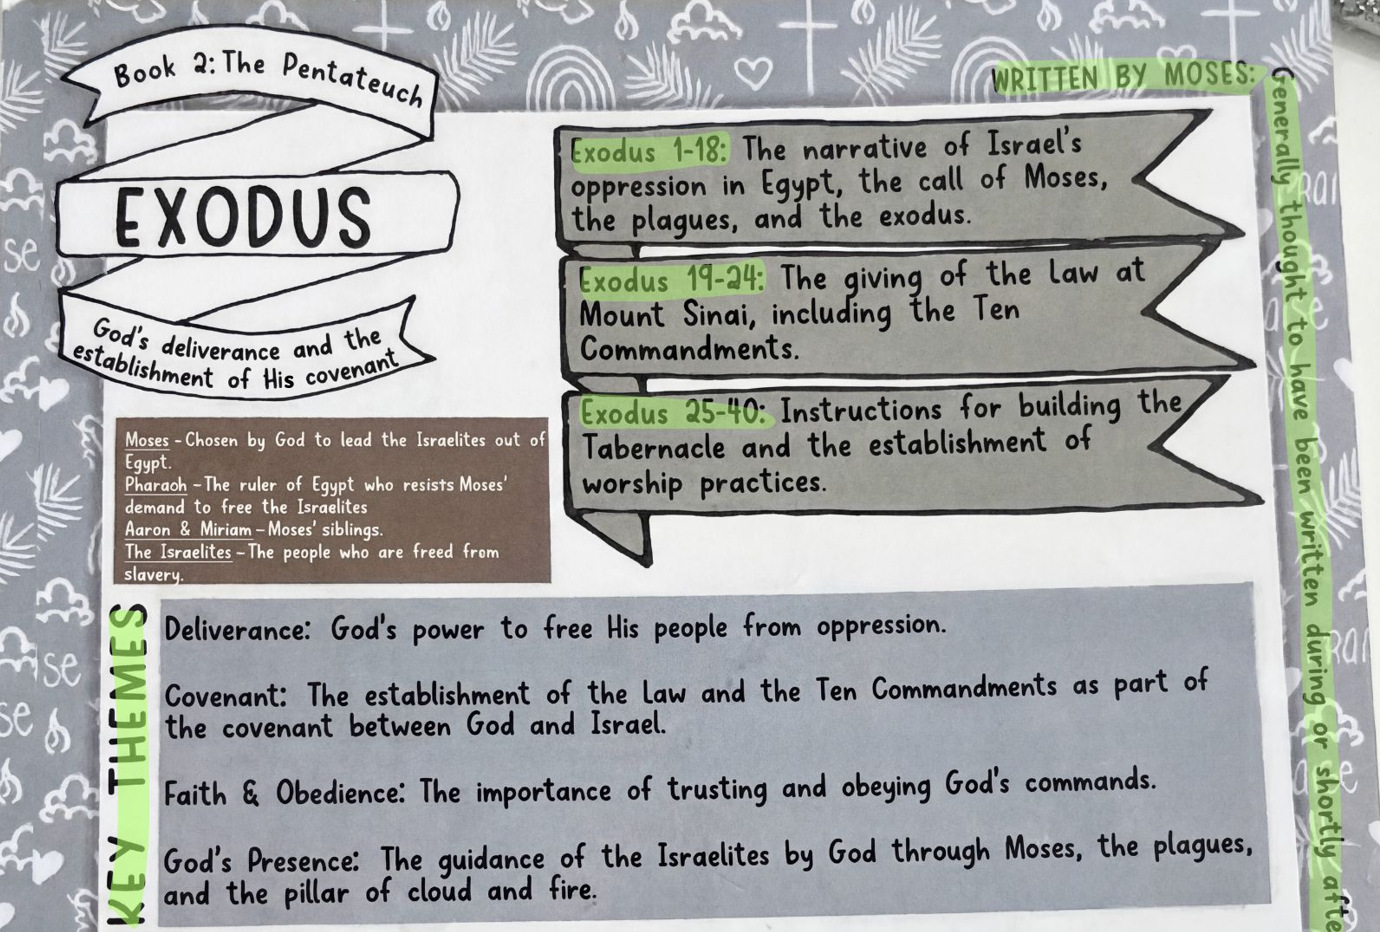 Book 2: The Pentateuch
EXODUS
God's deliverance and the
establishment of His covenant
WRITTEN BY MOSES:
Generally thought to have been written during or shortly afte
Exodus 1-18: The narrative of Israel's
oppression in Egypt, the call of Moses,
the plagues, and the exodus.
Exodus 19-24: The giving of the Law at
Mount Sinai, including the Ten
Commandments.
Exodus 25-40: Instructions for building the
Tabernacle and the establishment of
worship practices.
Moses - Chosen by God to lead the Israelites out of
Egypt.
Pharaoh - The ruler of Egypt who resists Moses'
demand to free the Israelites
Aaron & Miriam - Moses' siblings.
The Israelites - The people who are freed from
slavery.
KEY THEMES
Deliverance: God's power to free His people from oppression.
Covenant: The establishment of the Law and the Ten Commandments as part of
the covenant between God and Israel.
Faith & Obedience: The importance of trusting and obeying God's commands.
God's Presence: The guidance of the Israelites by God through Moses, the plagues,
and the pillar of cloud and fire.